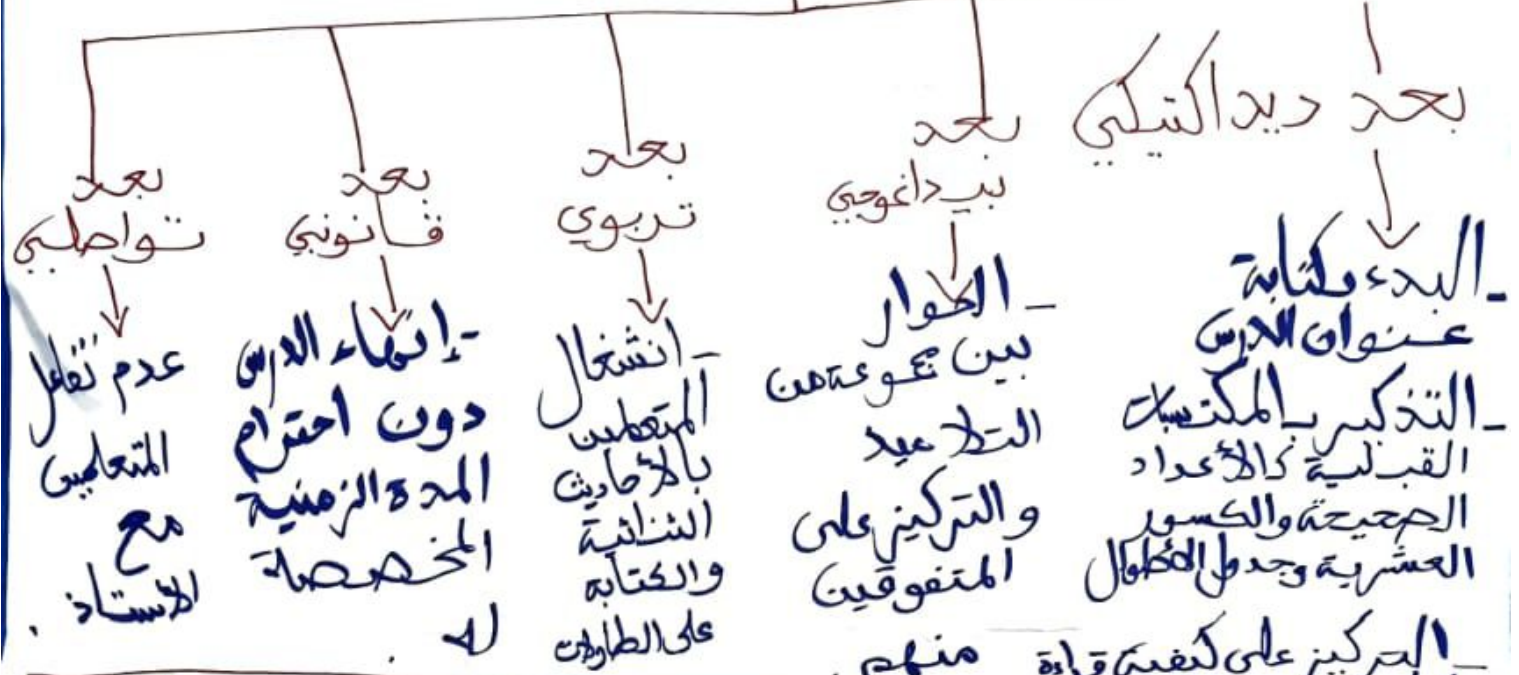 بعد ديداكتيكي
- البدء بكتابة
عنوان الدرس
- التذكير بالمكتسبات
القبلية كالأعداد
الصحيحة والكسور
العشرية وجدول الأطوال
- التركيز على كيفية قراءة
بعد
بيداغوجي
- الحوار
بين مجموعة من
التلاميذ
والتركيز على
المتفوقين
منهم
بعد
تربوي
- انشغال
المتعلمين
بالأحاديث
الثنائية
والكتابة
على الطاولات
بعد
قانوني
- إنهاء الدرس
دون احترام
المدة الزمنية
المخصصة
له.
بعد
تواصلي
عدم تفاعل
المتعلمين
مع
الأستاذ.